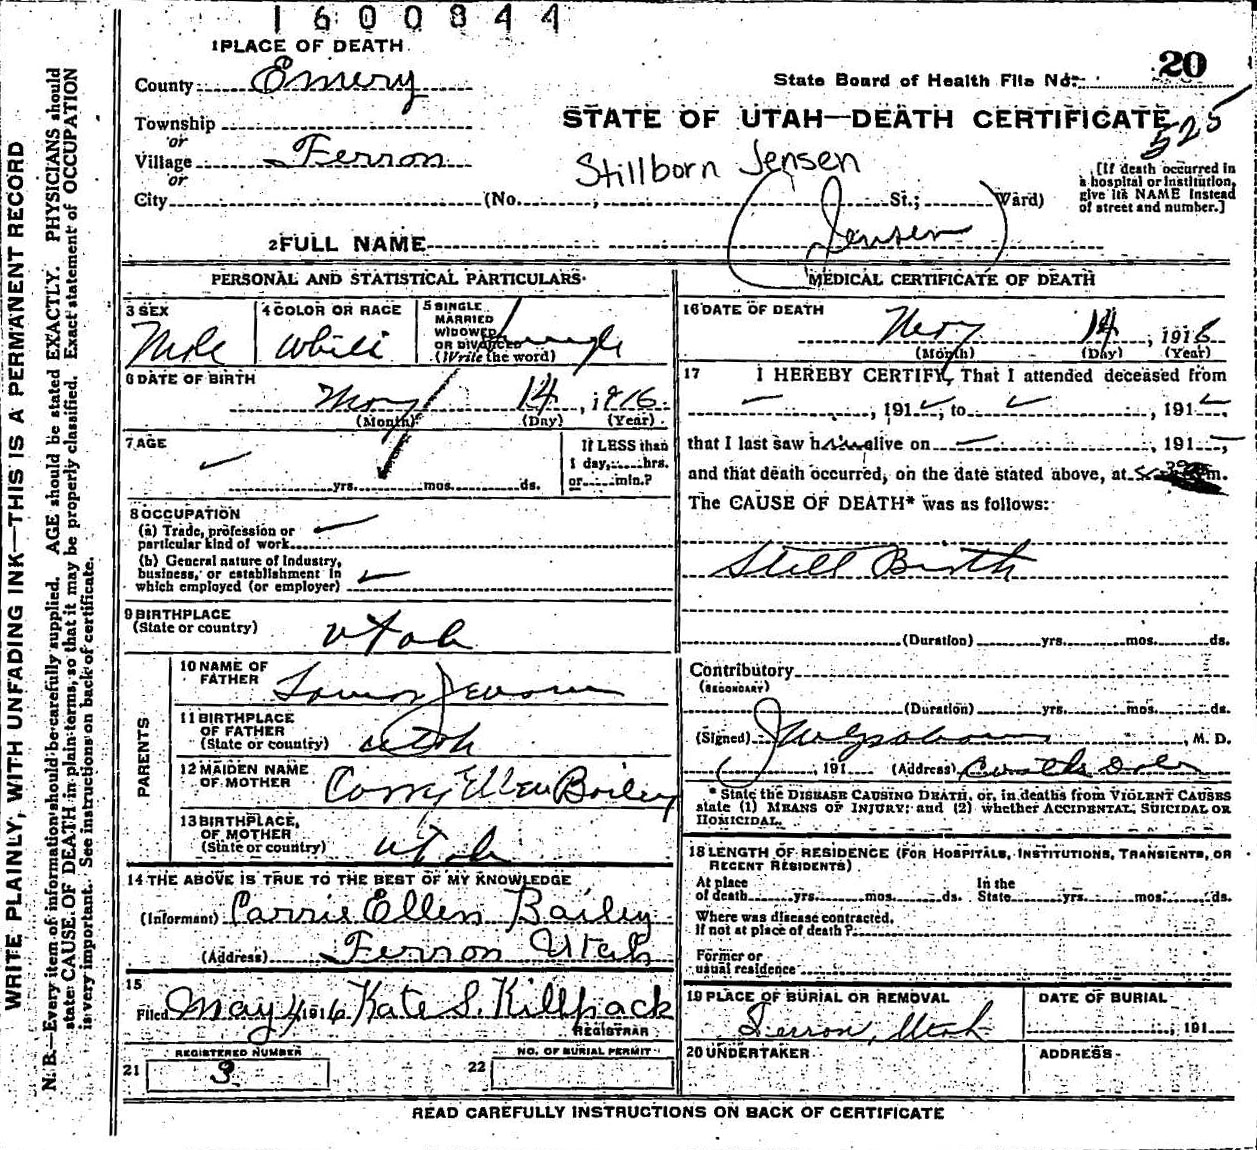 1600844
1 PLACE OF DEATH
County Emery
State Board of Health File No. 20
Township
or
STATE OF UTAH—DEATH CERTIFICATE
525
Village Ferron
or
Stillborn Jensen
City (No. , St.; Ward)
[If death occurred in
a hospital or institution,
give its NAME instead
of street and number.]
2 FULL NAME (Jensen)
PERSONAL AND STATISTICAL PARTICULARS
3 SEX
Male
4 COLOR OR RACE
White
5 SINGLE
MARRIED
WIDOWED
OR DIVORCED
(Write the word)
Single
6 DATE OF BIRTH
May 14, 1916
(Month) (Day) (Year)
7 AGE
yrs. mos. ds.
If LESS than
1 day, hrs.
or min.?
8 OCCUPATION
(a) Trade, profession or
particular kind of work
(b) General nature of Industry,
business, or establishment in
which employed (or employer)
9 BIRTHPLACE
(State or country)
Utah
PARENTS
10 NAME OF
FATHER
Jensen
11 BIRTHPLACE
OF FATHER
(State or country)
Utah
12 MAIDEN NAME
OF MOTHER
Ellen Bailey
13 BIRTHPLACE,
OF MOTHER
(State or country)
Utah
14 THE ABOVE IS TRUE TO THE BEST OF MY KNOWLEDGE
(Informant) Carrie Ellen Bailey
(Address) Ferron Utah
15
Filed May 4 1916 Kate S. Killpack
REGISTRAR
REGISTERED NUMBER
21 3
NO. OF BURIAL PERMIT
22
MEDICAL CERTIFICATE OF DEATH
16 DATE OF DEATH
May 14, 1916
(Month) (Day) (Year)
17 I HEREBY CERTIFY, That I attended deceased from
, 191 , to , 191
that I last saw him alive on , 191 ,
and that death occurred, on the date stated above, at m.
The CAUSE OF DEATH* was as follows:
Still Birth
(Duration) yrs. mos. ds.
Contributory
(SECONDARY)
(Duration) yrs. mos. ds.
(Signed) , M. D.
, 191 (Address) Castle Dale
* State the DISEASE CAUSING DEATH, or, in deaths from VIOLENT CAUSES
state (1) MEANS OF INJURY; and (2) whether ACCIDENTAL, SUICIDAL OR
HOMICIDAL.
18 LENGTH OF RESIDENCE (FOR HOSPITALS, INSTITUTIONS, TRANSIENTS, OR
RECENT RESIDENTS)
At place
of death yrs. mos. ds.
In the
State yrs. mos. ds.
Where was disease contracted,
if not at place of death?
Former or
usual residence
19 PLACE OF BURIAL OR REMOVAL
Ferron, Utah
DATE OF BURIAL
, 191
20 UNDERTAKER
ADDRESS
READ CAREFULLY INSTRUCTIONS ON BACK OF CERTIFICATE
WRITE PLAINLY, WITH UNFADING INK—THIS IS A PERMANENT RECORD
N. B.—Every item of information should be carefully supplied. AGE should be stated EXACTLY. PHYSICIANS should
state CAUSE OF DEATH in plain terms, so that it may be properly classified. Exact statement of OCCUPATION
is very important. See instructions on back of certificate.